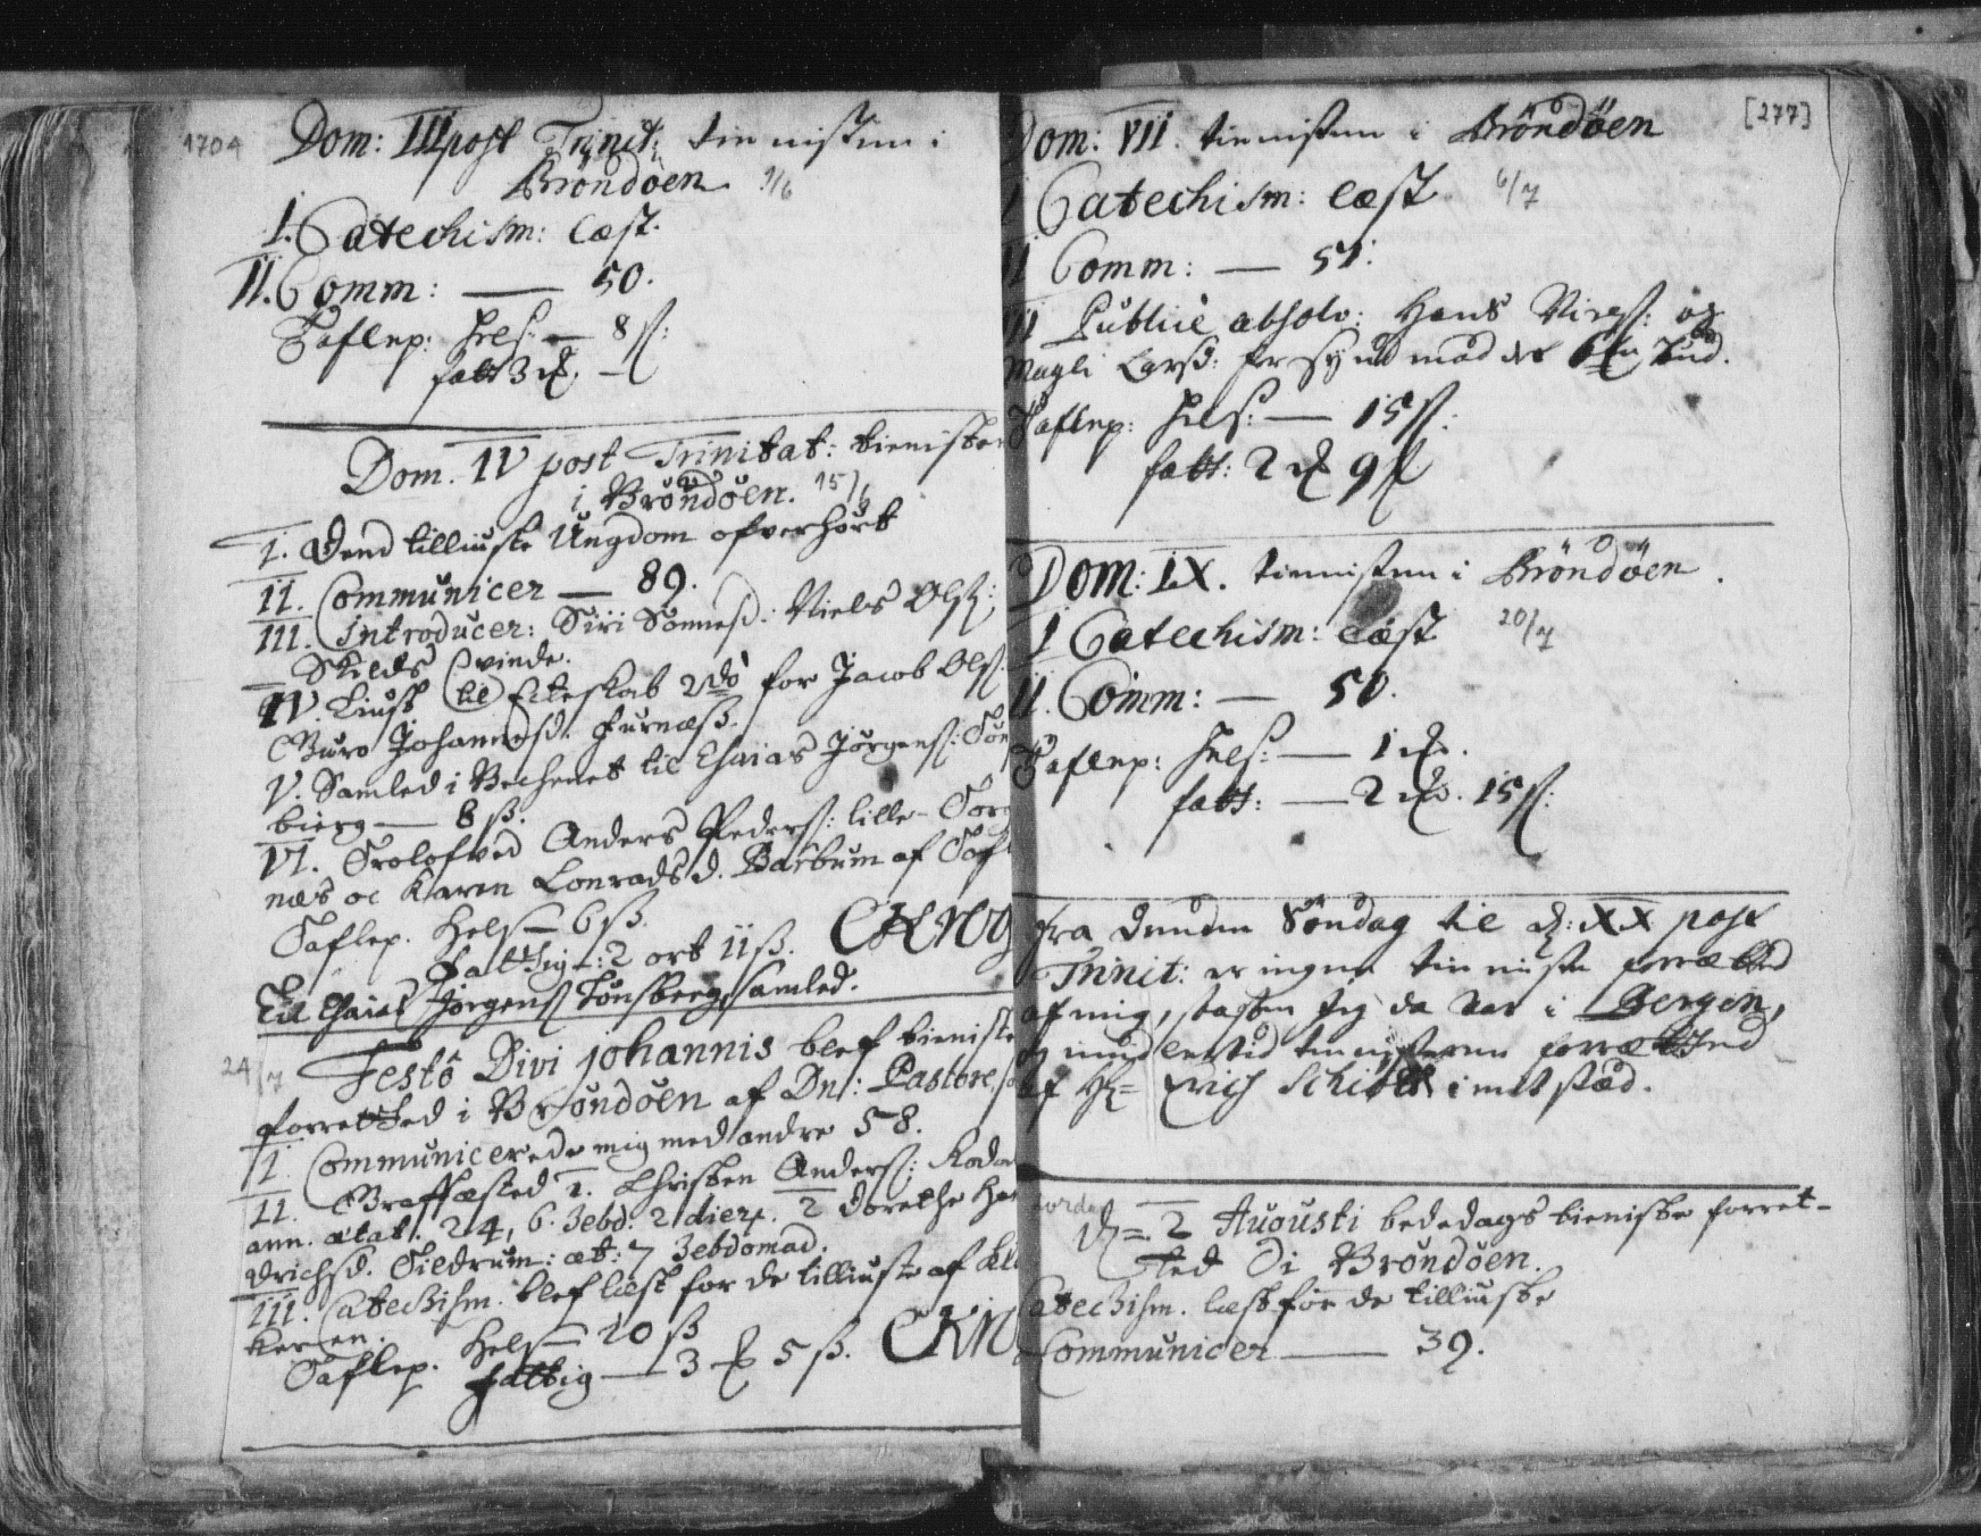 1704
Dom: III post Trinit: tienisten i
Bröndöen 1/6
I. Catechism: læst.
II. Comm: — 50.
Taflep: Hels: — 8 ß:
fatt: 3
Dom. IV post Trinitat: tienisten
i Bröndöen. 15/6
I. Dend tilliuste Ungdom ofverhört
II. Communicer — 89.
III. Introducer: Siri Sonnesd: Niels Olß:
Skilds Qvinde.
IV. Liust til Ecteskab 2do for Jacob Olß:
Guro Johannisd. Furnæß.
V. Samled i Bechenet til Esaias Jörgenß: Tön
bierg — 8 ß.
VI. Trolofved Anders Pederß: lille-Torg
næs oc Karen Conradsd. Barbum af Tof
Taflep. Hels — 6 ß.
Fattig —: 2 ort 11 ß.
Til Esaias Jörgenß Tönsberg samled.
24/7 Festô Divi Johannis blef tieniste
forretted i Bröndöen af Dn: Pastore
I. Communicerede mig med andre 58.
II. Graffæsted 1. Christen Anderß:
ann. ætat: 24, 6. Zebd: 2 dier. 2 Dorethe Han
drichsd. Tildrum: æt: 7 Zebdomad.
III. Catechism. blef læst for de tilliuste af Klo
keren.
Taflep. Hels — 10 ß
Fattig — 3 5 ß.
[277]
Dom: VII. tienisten i Bröndöen
I Catechism: læst 6/7
II Comm: — 51:
III Publicè absolv: Hans Nielß: og
Magli Larsd: for synd mod det 6te bud.
Taflep: Hels: — 15 ß:
fatt: 2 9 ß
Dom: IX. tienisten i Bröndöen.
I Catechism: læst 20/7
II. Comm: — 50.
Taflep: Hels: — 1
fatt: — 2 15 ß:
fra denden Söndag til D: XX post
Trinit: er ingen tieniste forrætted
af mig, saasom jeg da var i Bergen,
og midlertid tienisterne forretted
af Hr= Erich Schi i mit stæd.
D= 2 Augusti bededags tieniste forret-
ted Di Bröndöen.
Catechism. læst for de tilliuste
Communicer — 39.